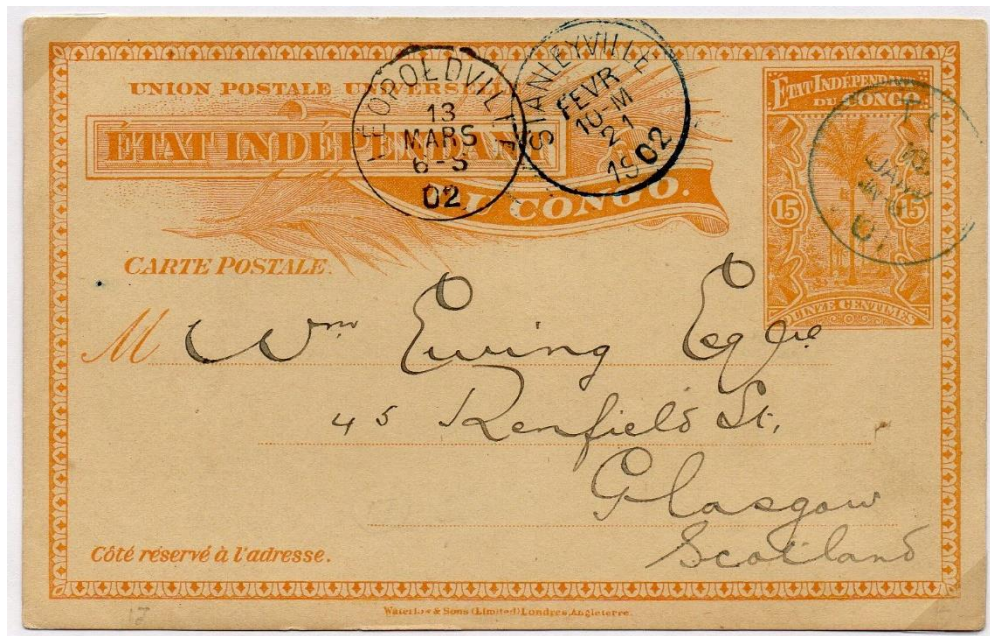 UNION POSTALE UNIVERSELLE
ÉTAT INDÉPENDANT
DU CONGO.
CARTE POSTALE.
LÉOPOLDVILLE
13
MARS
6-S
02
STANLEYVILLE
FEVR
10-M
21
1902
ÉTAT INDÉPENDANT
DU CONGO.
15 15
QUINZE CENTIMES
M Wm Ewing Esqre
45 Renfield St.
Glasgow
Scotland
Côté réservé à l'adresse.
Waterlow & Sons (Limited) Londres, Angleterre.